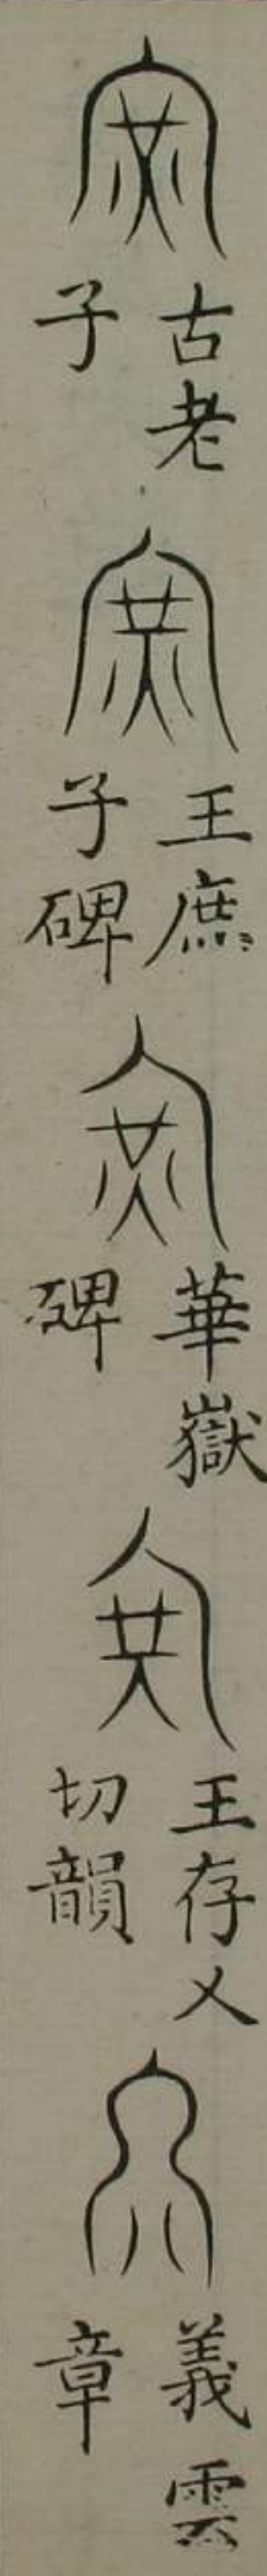 古老
子
王庶
子碑
華嶽
碑
王存乂
切韻
義雲
章